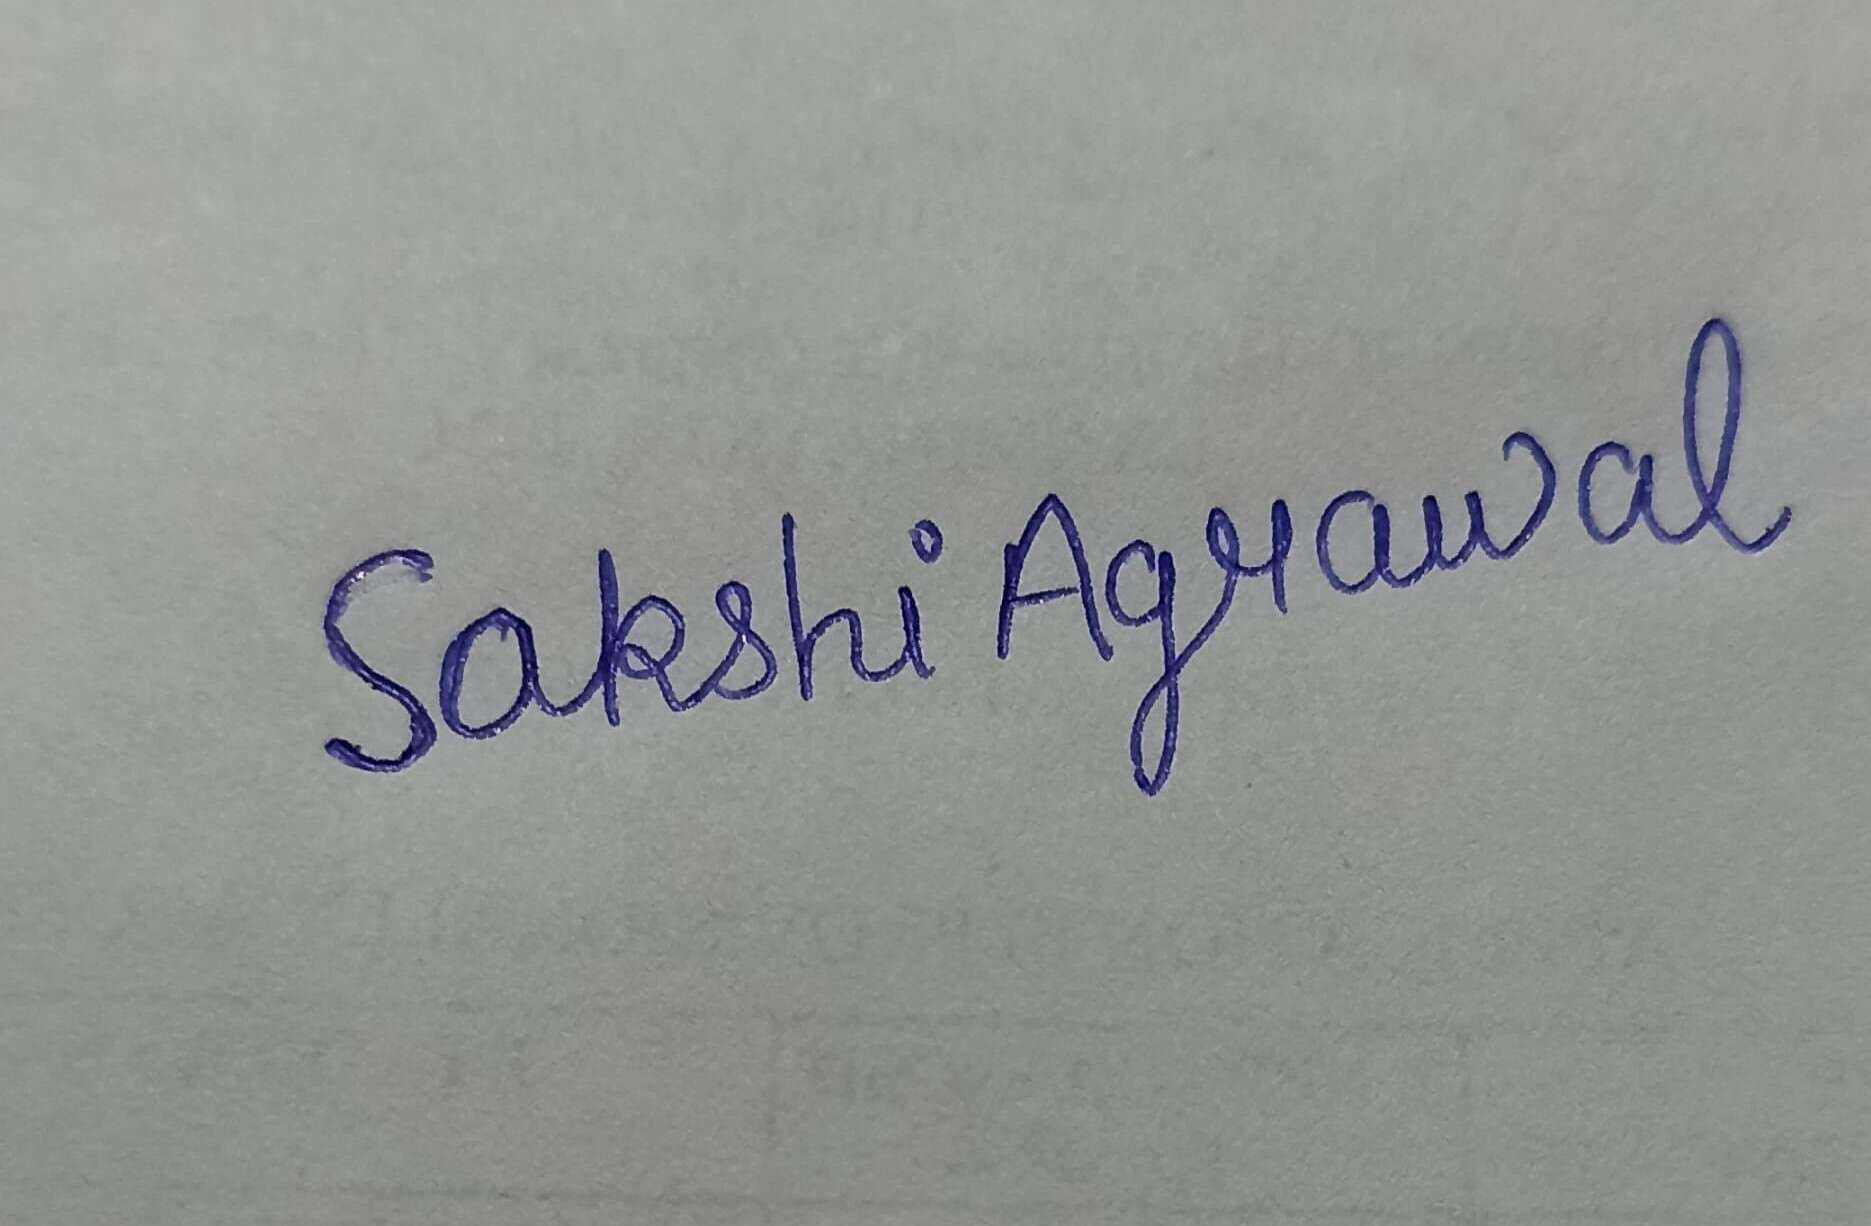 Sakshi Agrawal